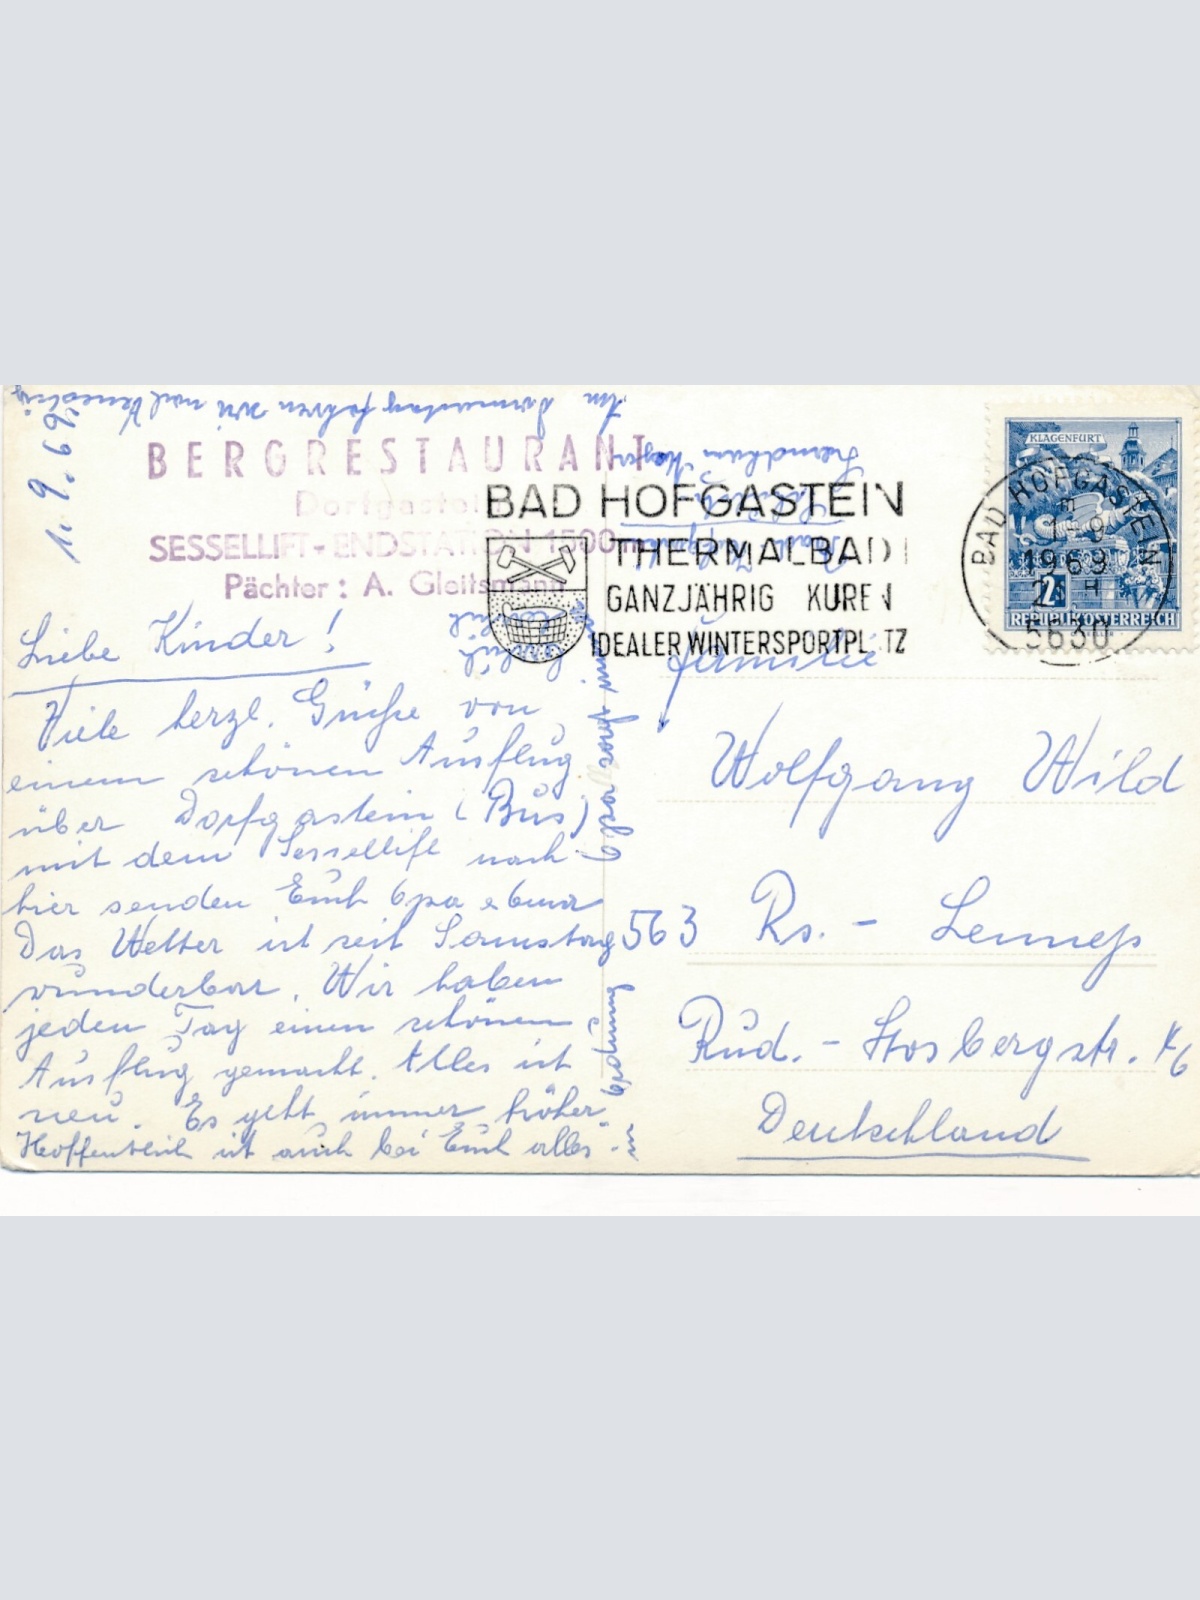 1.9.69
BERGRESTAURANT
Dorfgastein
SESSELLIFT-ENDSTATION 1500m
Pächter: A. Gleitsmann
BAD HOFGASTEIN
THERMALBAD
GANZJÄHRIG KUREN
IDEALER WINTERSPORTPL TZ
KLAGENFURT
2S
REPUBLIK ÖSTERREICH
BAD HOFGASTEIN
1969
5630
Liebe Kinder!
Viele herzl. Grüße von
einem schönen Ausflug
über Dorfgastein (Bus)
mit dem Sessellift nach
hier senden Euch Opa
Das Wetter ist seit Samstag
wunderbar. Wir haben
jeden Tag einen schönen
Ausflug gemacht. Alles ist
neu. Es geht immer höher
Hoffentlich ist auch bei Euch alles
in Ordnung
Am Donnerstag fahren wir nach Venedig
Familie
Wolfgang Wild
563 Rs. - Lennep
Rud. - Stosbergstr.
Deutschland